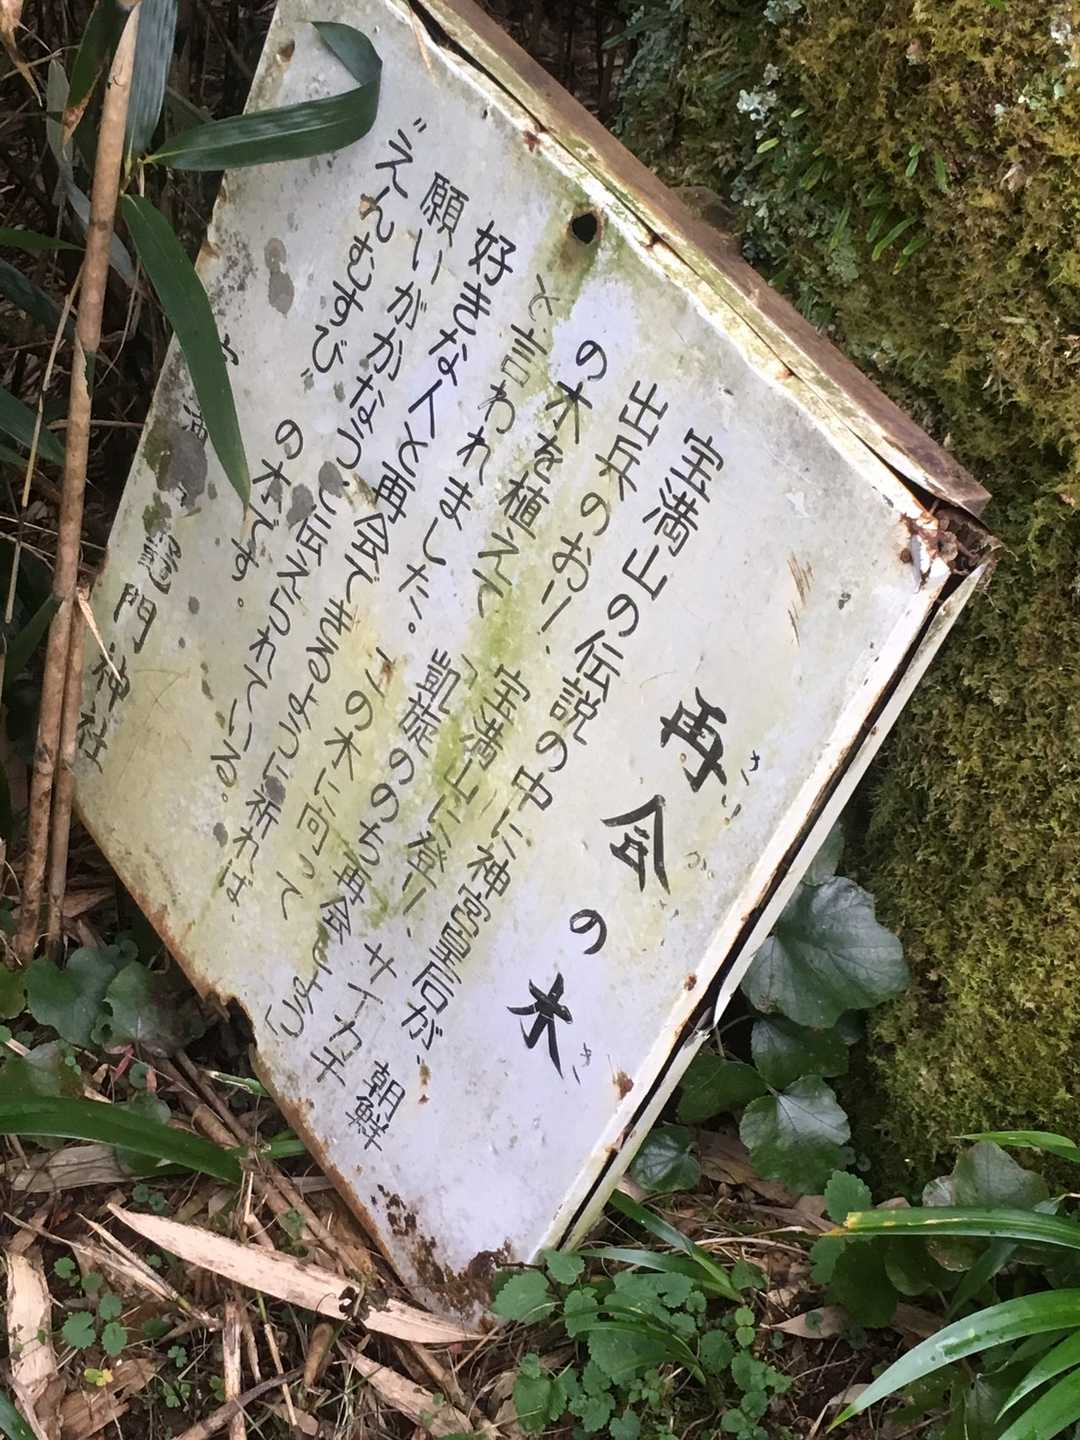 再会の木
さいかい
き
宝満山の伝説の中に神宮皇后が、朝鮮
出兵のおり、宝満山に登り、サイカチ
の木を植えて「凱旋ののち再会しよう」
と言われました。この木に向って
好きな人と再会できるように祈れば、
願いがかなうと伝えられている。
〝えんむすび〟の木です。
竈門神社